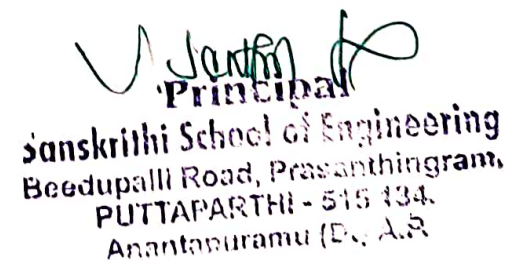 Principal
Sanskrithi School of Engineering
Beedupalli Road, Prasanthingram,
PUTTAPARTHI - 515 134.
Anantapuramu (D., A.P.